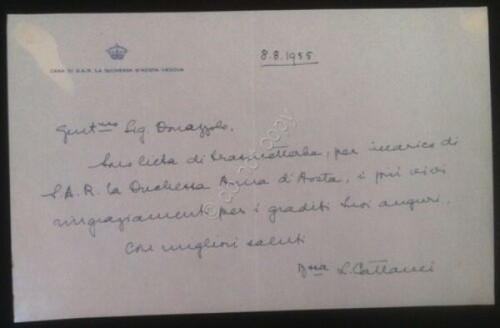 8.8.1955
CASA DI S.A.R. LA DUCHESSA D'AOSTA VEDOVA
Gent.mo Sig. Donazzolo,
Sono lieta di trasmetterle, per incarico di
S.A.R. la Duchessa Anna d'Aosta, i più vivi
ringraziamenti per i graditi Suoi auguri.
Con migliori saluti
L. Cattanei